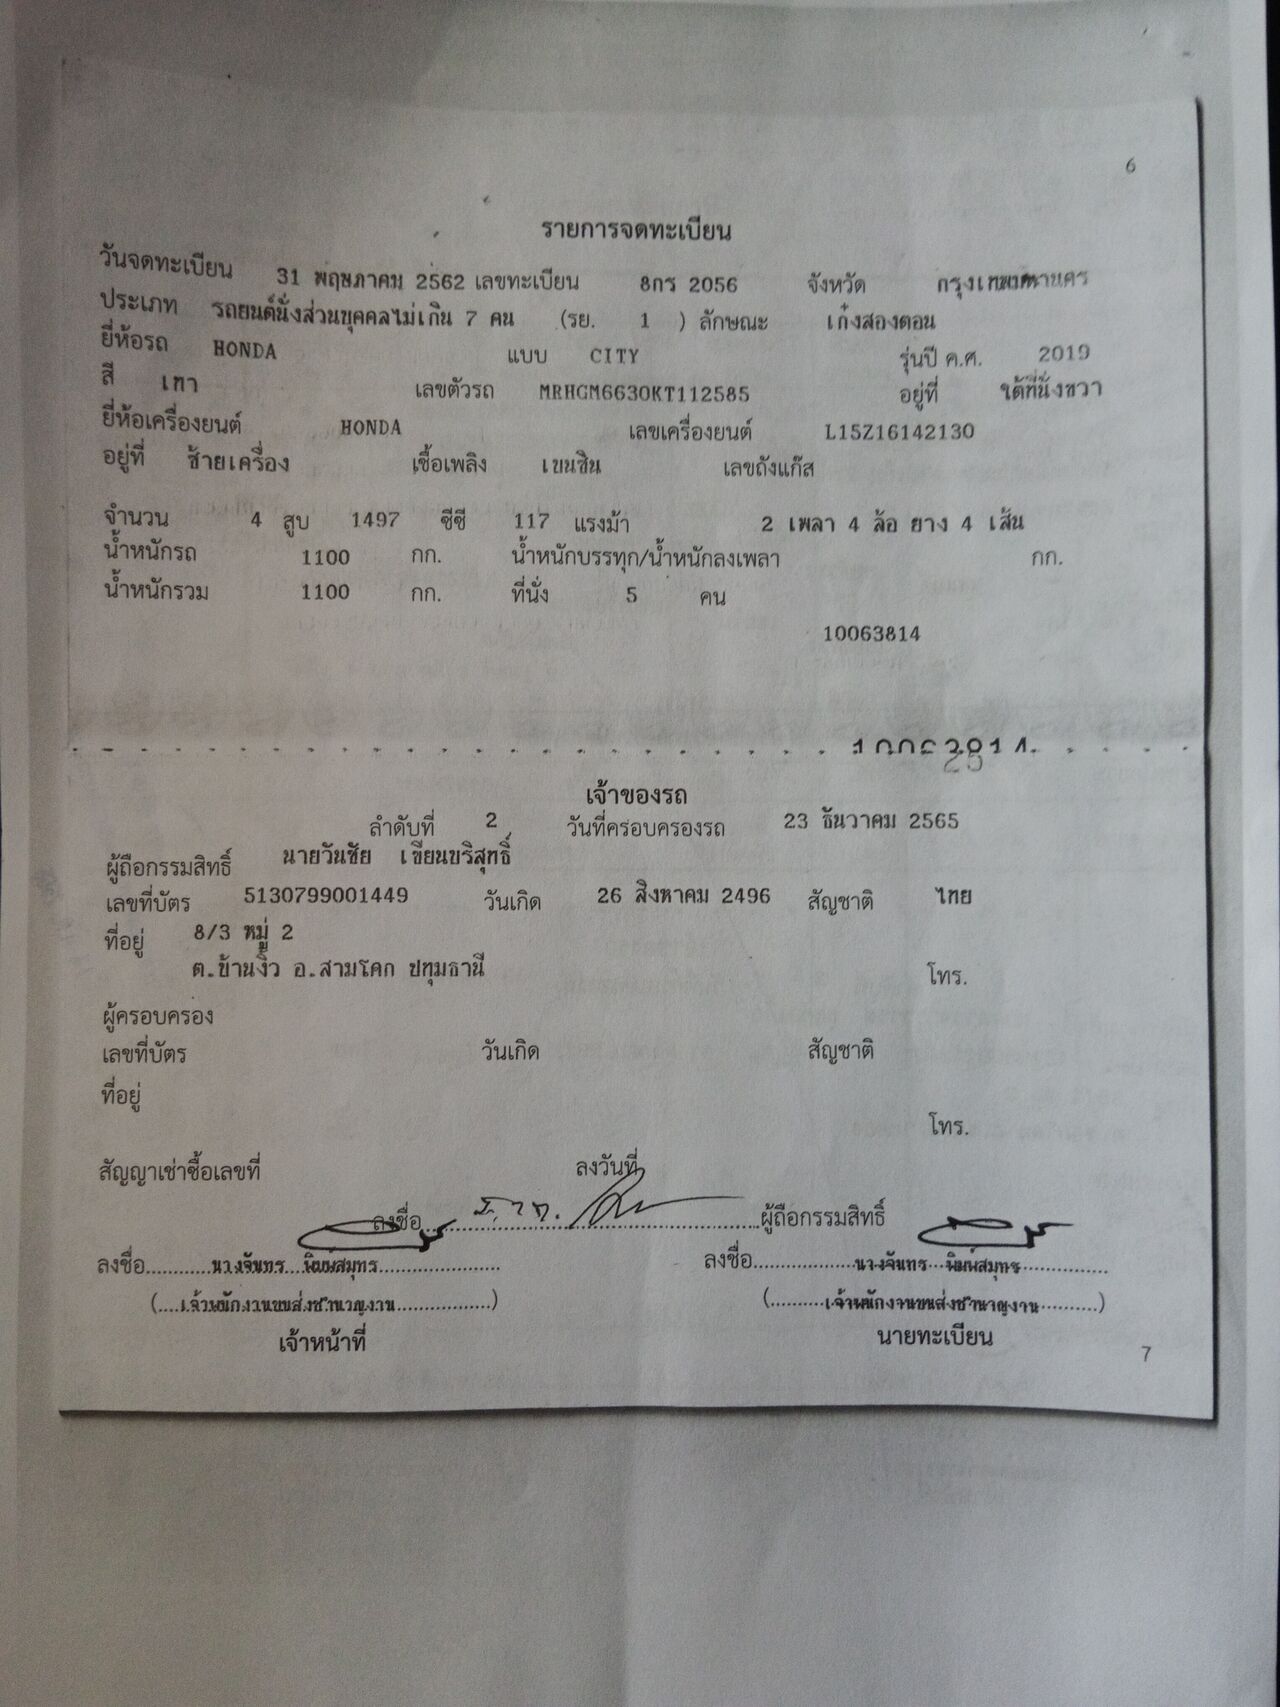 6
รายการจดทะเบียน
วันจดทะเบียน 31 พฤษภาคม 2562 เลขทะเบียน 8กร 2056 จังหวัด กรุงเทพมหานคร
ประเภท รถยนต์นั่งส่วนบุคคลไม่เกิน 7 คน (รย. 1 ) ลักษณะ เก๋งสองตอน
ยี่ห้อรถ HONDA แบบ CITY รุ่นปี ค.ศ. 2019
สี เทา เลขตัวรถ MRHGM6630KT112585 อยู่ที่ ใต้ที่นั่งขวา
ยี่ห้อเครื่องยนต์ HONDA เลขเครื่องยนต์ L15Z16142130
อยู่ที่ ซ้ายเครื่อง เชื้อเพลิง เบนซิน เลขถังแก๊ส
จำนวน 4 สูบ 1497 ซีซี 117 แรงม้า 2 เพลา 4 ล้อ ยาง 4 เส้น
น้ำหนักรถ 1100 กก. น้ำหนักบรรทุก/น้ำหนักลงเพลา กก.
น้ำหนักรวม 1100 กก. ที่นั่ง 5 คน
10063814
เจ้าของรถ
ลำดับที่ 2 วันที่ครอบครองรถ 23 ธันวาคม 2565
ผู้ถือกรรมสิทธิ์ นายวันชัย เขียนบริสุทธิ์
เลขที่บัตร 5130799001449 วันเกิด 26 สิงหาคม 2496 สัญชาติ ไทย
ที่อยู่ 8/3 หมู่ 2
ต.บ้านงิ้ว อ.สามโคก ปทุมธานี โทร.
ผู้ครอบครอง
เลขที่บัตร วันเกิด สัญชาติ
ที่อยู่
โทร.
สัญญาเช่าซื้อเลขที่ ลงวันที่
ลงชื่อ ผู้ถือกรรมสิทธิ์
ลงชื่อ นางจันทร พิมพ์สมุทร ลงชื่อ นางจันทร พิมพ์สมุทร
(เจ้าพนักงานขนส่งชำนาญงาน) (เจ้าพนักงานขนส่งชำนาญงาน)
เจ้าหน้าที่ นายทะเบียน
7